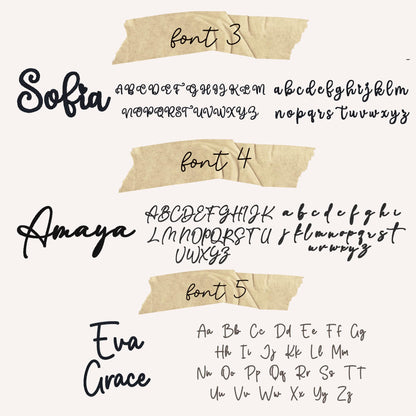 font 3
Sofia
ABCDEFGHIJKLM
NOPQRSTUVWXYZ
abcdefghijklm
nopqrstuvwxyz
font 4
Amaya
ABCDEFGHIJK
LMNOPQRSTU
VWXYZ
abcdefghi
jklmnopqrst
uvwxyz
font 5
Eva
Grace
Aa Bb Cc Dd Ee Ff Gg
Hh Ii Jj Kk Ll Mm
Nn Oo Pp Qq Rr Ss TT
Uu Vv Ww Xx Yy Zz